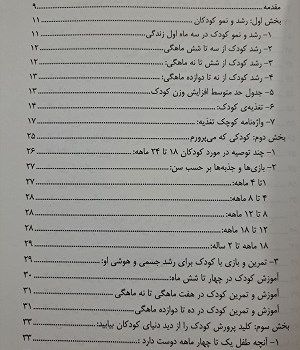 مقدمه ........ ۹
بخش اول: رشد و نمو کودکان ........ ۱۱
۱- رشد و نمو کودک در سه ماه اول زندگی ........ ۱۱
۲- رشد کودک از سه تا شش ماهگی ........ ۱۲
۳- رشد کودک از شش تا نه ماهگی ........ ۱۲
۴- رشد کودک از نه تا دوازده ماهگی ........ ۱۳
۵- جدول حد متوسط افزایش وزن کودک ........ ۱۳
۶- تغذیه‌ی کودک: ........ ۱۴
۷- واژه‌نامه کوچک تغذیه: ........ ۱۷
بخش دوم: کودکی که می‌پرورم ........ ۲۵
۱- چند توصیه در مورد کودکان ۱۸ تا ۲۴ ماهه: ........ ۲۶
۲- بازی‌ها و جذبه‌ها بر حسب سن: ........ ۲۷
۱تا ۴ ماهه: ........ ۲۷
۴ تا ۸ ماهه: ........ ۲۸
۸ تا ۱۲ ماهه: ........ ۲۸
۱۲ تا ۱۸ ماهه: ........ ۲۸
۱۸ ماهه تا ۲ ساله: ........ ۲۹
۳- تمرین و بازی با کودک برای رشد جسمی و هوشی او: ........ ۲۹
آموزش و تمرین کودک در چهار تا شش ماه: ........ ۳۰
آموزش و تمرین کودک در هفت ماهگی تا نه ماهگی ........ ۳۱
آموزش و تمرین کودک در ده تا دوازده ماهگی ........ ۳۱
بخش سوم: کلید پرورش کودک را از دید دنیای کودکان بیابید: ........ ۳۳
۱- آنچه طفل یک تا چهار ماهه دوست دارد : ........ ۳۳